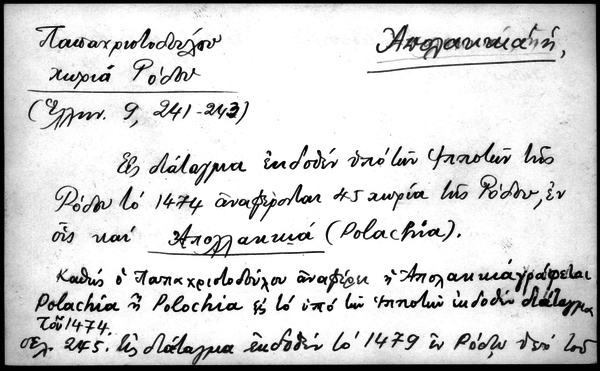 Παπαχριστοδούλου
χωριά Ρόδου
(Ἑλλην. 9, 241-243)
Ἀπολακκιά, ἡ,
Εἰς διάταγμα ἐκδοθέν ὑπό τῶν Ἱπποτῶν τῆς
Ρόδου τό 1474 ἀναφέρονται 45 χωρία τῆς Ρόδου, ἐν
οἷς καί Ἀπολλακκιά (Polachia).
Καθώς ὁ Παπαχριστοδούλου ἀναφέρει ἡ Ἀπολακκιά γράφεται
Polachia ἤ Polochia εἰς τό ὑπό τῶν Ἱπποτῶν ἐκδοθέν διάταγμα
τοῦ 1474.
σελ. 245. Εἰς διάταγμα ἐκδοθέν τό 1479 ἐν Ρόδῳ ὑπό τοῦ